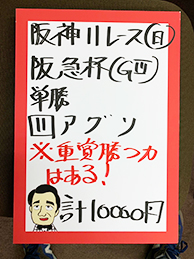 阪神11レース㊐
阪急杯(GⅢ)
単勝
⑪アグソ
※重賞勝つ力
はある!
計10000円